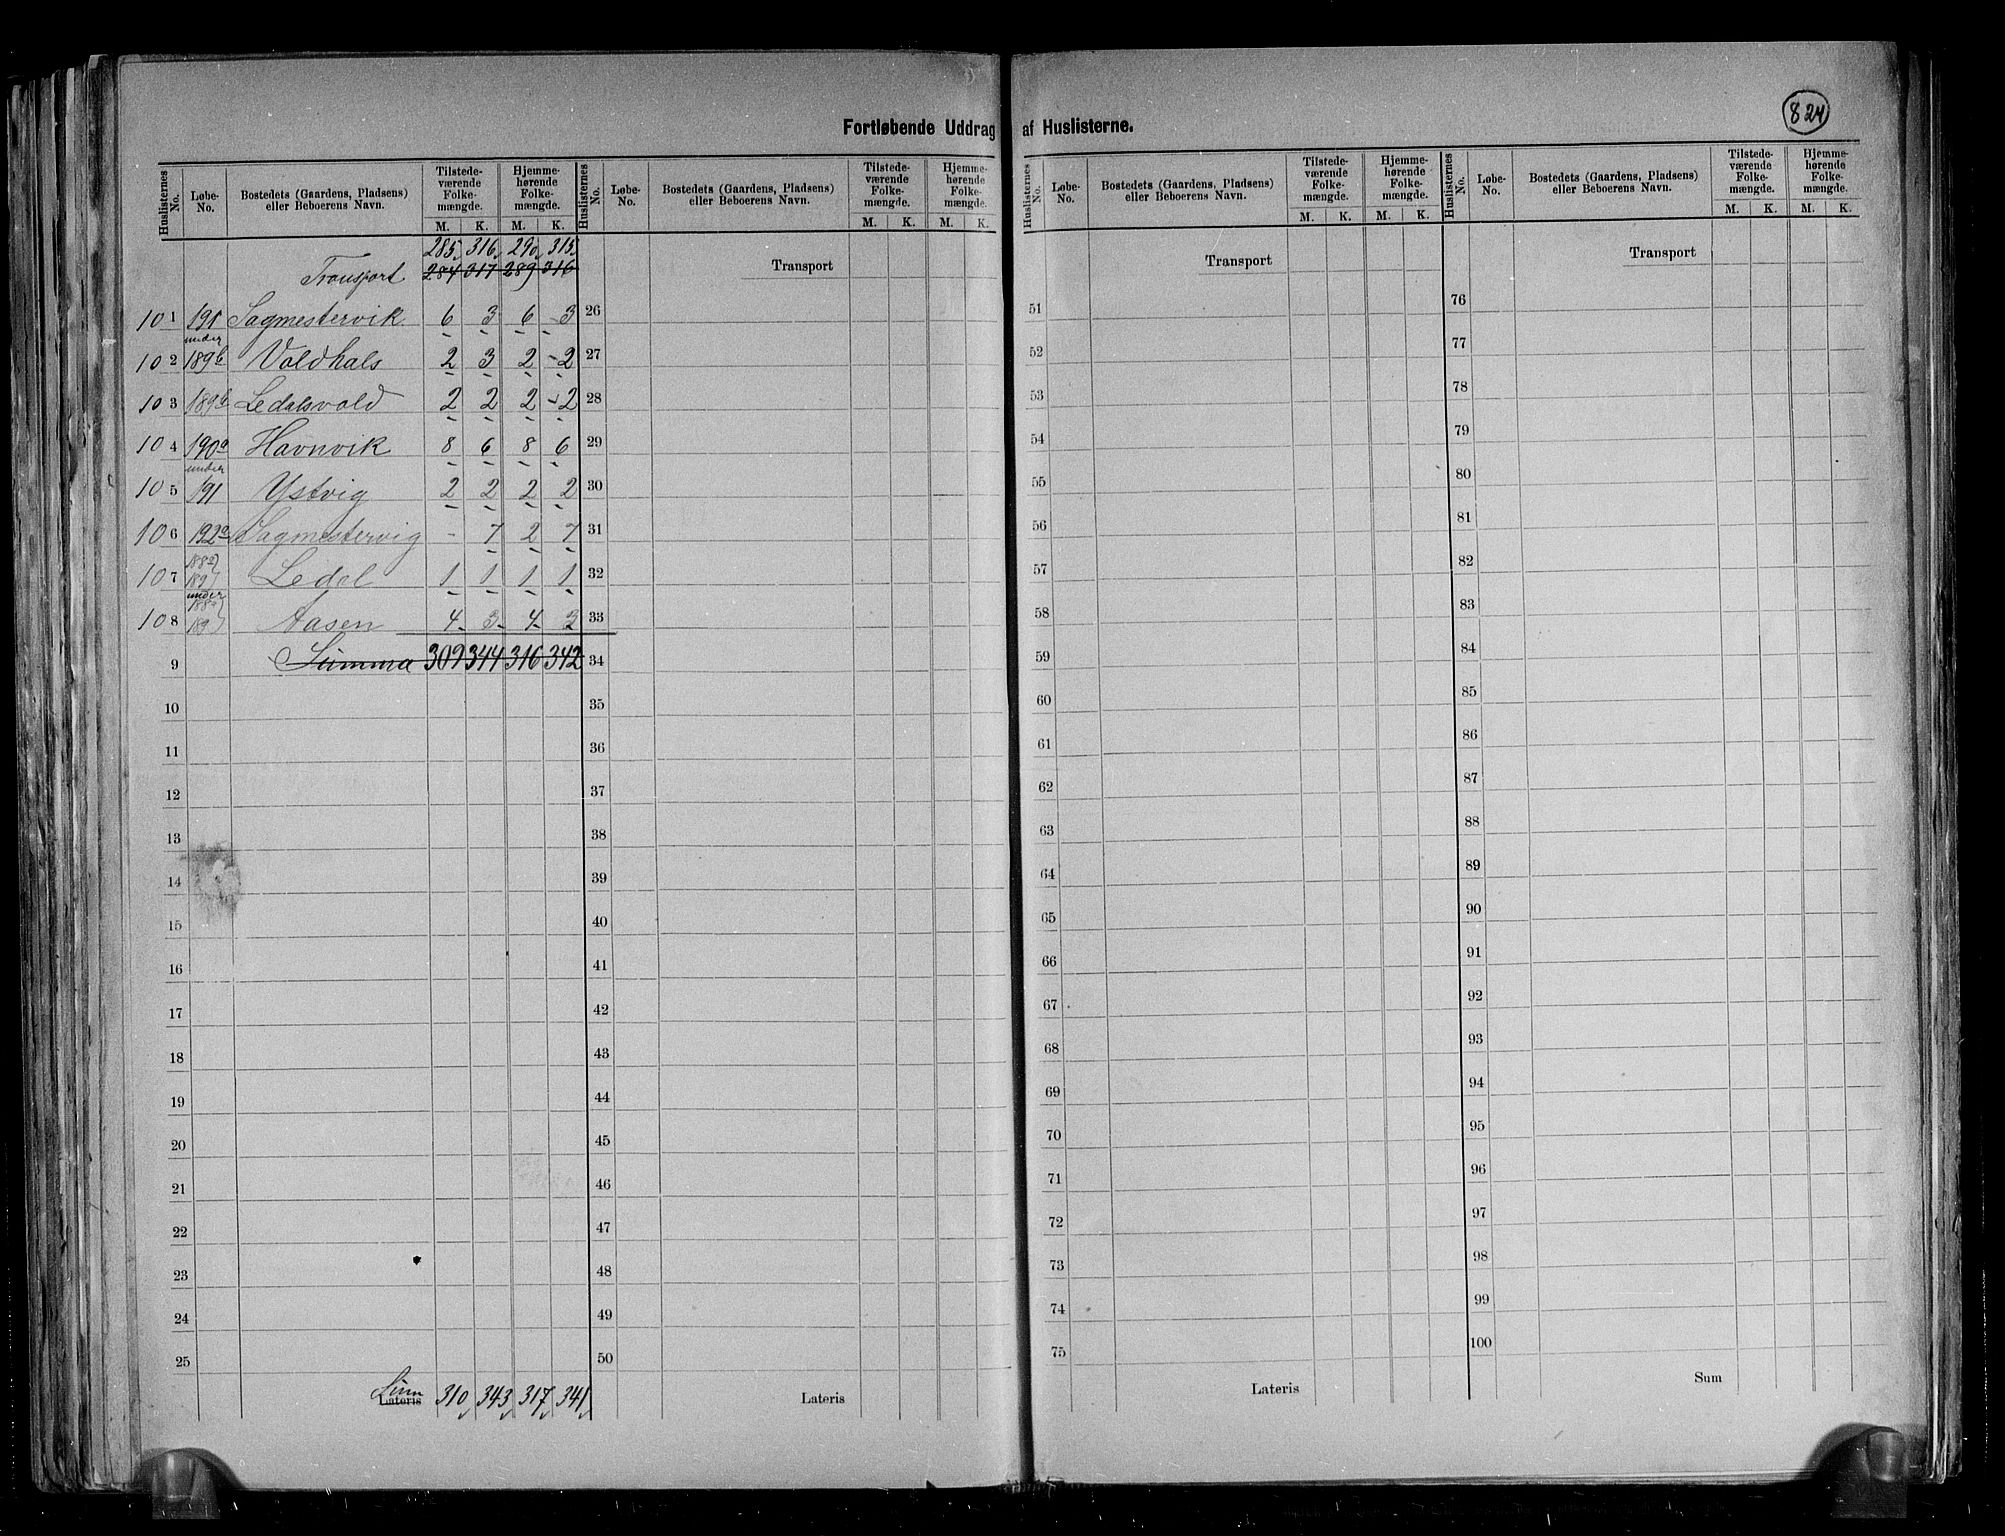 824
Fortløbende Uddrag af Huslisterne.
Huslisternes No. Løbe-No. Bostedets (Gaardens, Pladsens) eller Beboerens Navn. Tilstedeværende Folkemængde. M. K. Hjemmehørende Folkemængde. M. K.
Huslisternes No. Løbe-No. Bostedets (Gaardens, Pladsens) eller Beboerens Navn. Tilstedeværende Folkemængde. M. K. Hjemmehørende Folkemængde. M. K.
Huslisternes No. Løbe-No. Bostedets (Gaardens, Pladsens) eller Beboerens Navn. Tilstedeværende Folkemængde. M. K. Hjemmehørende Folkemængde. M. K.
Huslisternes No. Løbe-No. Bostedets (Gaardens, Pladsens) eller Beboerens Navn. Tilstedeværende Folkemængde. M. K. Hjemmehørende Folkemængde. M. K.
285 316 290 315
Transport 284 317 289 316
101 191 Sagmestervik 6 3 6 3
102 under 189b Voldhals 2 3 2 2
103 189b Ledalsvold 2 2 2 2
104 190a Havnvik 8 6 8 6
105 under 191 Ystvig 2 2 2 2
106 192a Sagmestervig - 7 2 7
107 188a 189 Ledal 1 1 1 1
108 under 188a 189 Aasen 4 3 4 3
9 Summa 309 344 316 342
10
11
12
13
14
15
16
17
18
19
20
21
22
23
24
25
Sum Lateris 310 343 317 341
Transport
26
27
28
29
30
31
32
33
34
35
36
37
38
39
40
41
42
43
44
45
46
47
48
49
50
Lateris
Transport
51
52
53
54
55
56
57
58
59
60
61
62
63
64
65
66
67
68
69
70
71
72
73
74
75
Lateris
Transport
76
77
78
79
80
81
82
83
84
85
86
87
88
89
90
91
92
93
94
95
96
97
98
99
100
Sum